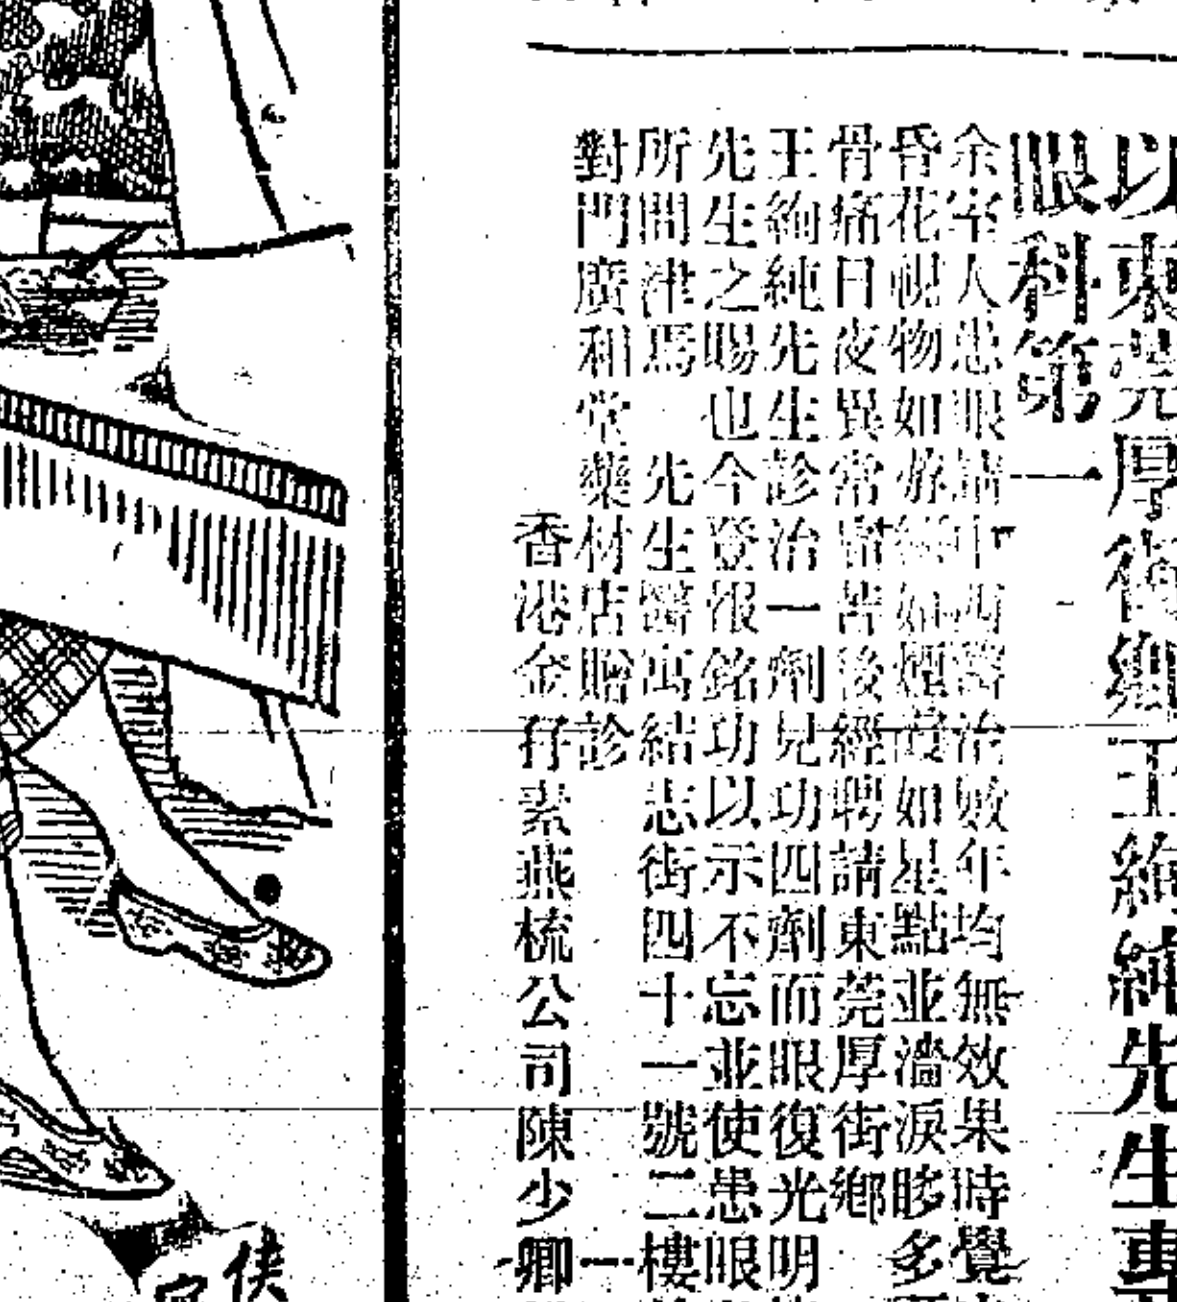 以東莞厚街鄉王絢純先生專
眼科第一
余室人患眼請中西醫治數年均無效果時覺
昏花視物如游絲如煙霞如星點並濇淚眵多
骨痛日夜異常畱苦後經聘請東莞厚街鄉
王絢純先生診治一劑見功四劑而眼復光明
先生之賜也今登報銘功以示不忘並使患眼
所問津焉 先生醫寓結志街四十一號二樓
對門廣和堂藥材店贈診
香港金孖素燕梳公司陳少卿
俠